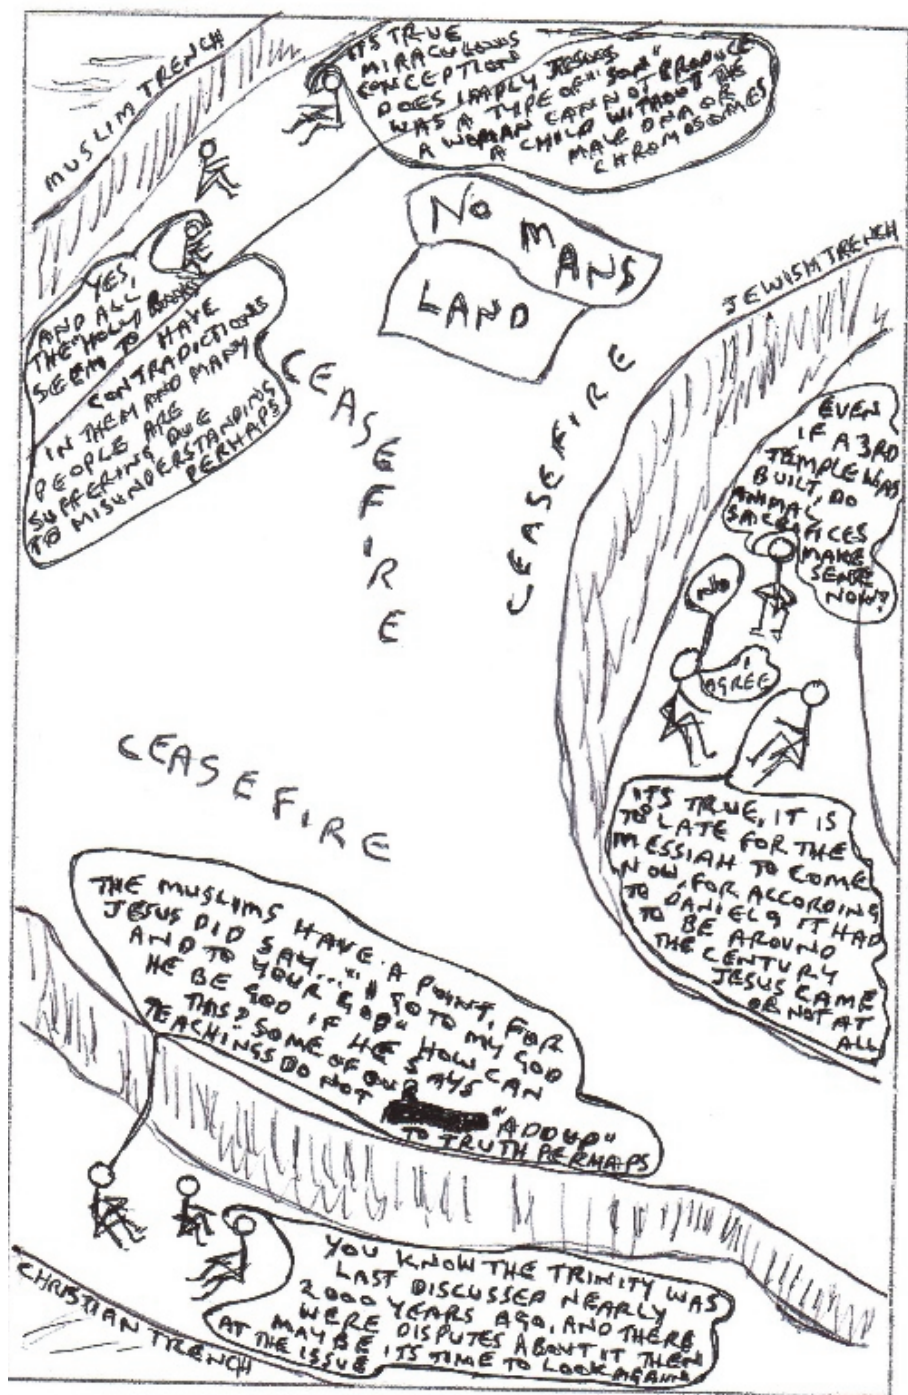 MUSLIM TRENCH
ITS TRUE
MIRACULOUS
CONCEPTION
DOES IMPLY JESUS
WAS A TYPE OF "SON"
A WOMAN CANNOT PRODUCE
A CHILD WITHOUT THE
MALE DNA OR
CHROMOSOMES
YES,
AND ALL
THE "HOLY BOOKS
SEEM TO HAVE
CONTRADICTIONS
IN THEM AND MANY
PEOPLE ARE
SUFFERING DUE
TO MISUNDERSTANDINGS
PERHAPS
NO MANS
LAND
CEASEFIRE
CEASEFIRE
JEWISH TRENCH
EVEN
IF A 3RD
TEMPLE WAS
BUILT, DO
ANIMAL
SACRAFICES
MAKE
SENSE
NOW?
NO
I
AGREE
ITS TRUE, IT IS
TO LATE FOR THE
MESSIAH TO COME
NOW, FOR ACCORDING
TO DANIEL 9 IT HAD
TO BE AROUND
THE CENTURY
JESUS CAME
OR NOT AT
ALL
CEASEFIRE
THE MUSLIMS HAVE A POINT, FOR
JESUS DID SAY...."I GO TO MY GOD
AND TO YOUR GOD" HOW CAN
HE BE GOD IF HE SAYS
THIS? SOME OF OUR
TEACHINGS DO NOT "ADD UP"
TO TRUTH PERHAPS
YOU KNOW THE TRINITY WAS
LAST DISCUSSED NEARLY
2000 YEARS AGO, AND THERE
WERE DISPUTES ABOUT IT THEN
MAYBE ITS TIME TO LOOK AGAIN
AT THE ISSUE
CHRISTIAN TRENCH